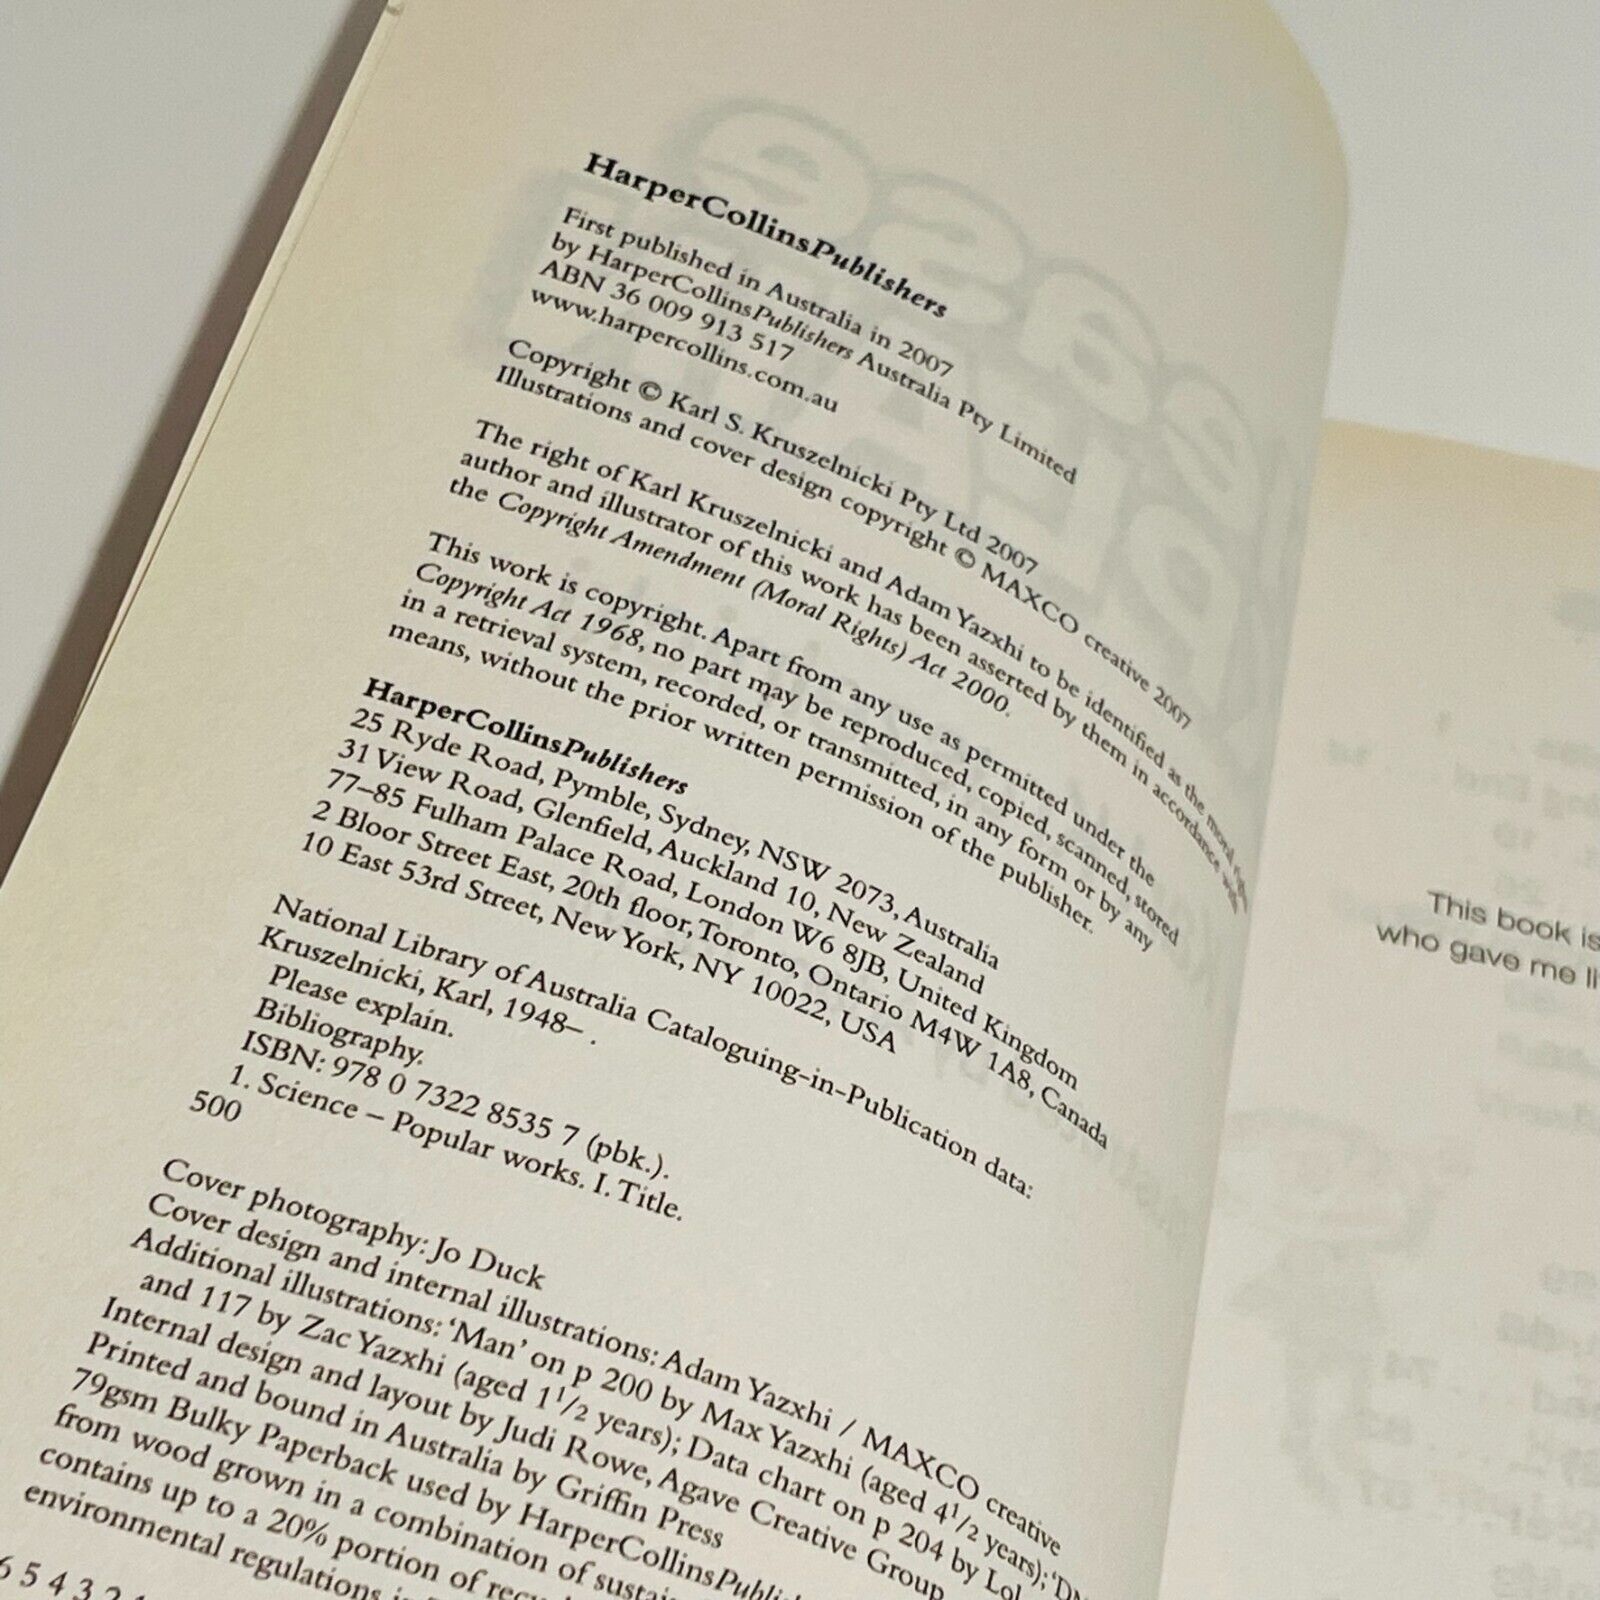 HarperCollinsPublishers
First published in Australia in 2007
by HarperCollinsPublishers Australia Pty Limited
ABN 36 009 913 517
www.harpercollins.com.au
Copyright © Karl S. Kruszelnicki Pty Ltd 2007
Illustrations and cover design copyright © MAXCO creative 2007
The right of Karl Kruszelnicki and Adam Yazxhi to be identified as the moral rights
author and illustrator of this work has been asserted by them in accordance with
the Copyright Amendment (Moral Rights) Act 2000.
This work is copyright. Apart from any use as permitted under the
Copyright Act 1968, no part may be reproduced, copied, scanned, stored
in a retrieval system, recorded, or transmitted, in any form or by any
means, without the prior written permission of the publisher.
HarperCollinsPublishers
25 Ryde Road, Pymble, Sydney, NSW 2073, Australia
31 View Road, Glenfield, Auckland 10, New Zealand
77–85 Fulham Palace Road, London W6 8JB, United Kingdom
2 Bloor Street East, 20th floor, Toronto, Ontario M4W 1A8, Canada
10 East 53rd Street, New York, NY 10022, USA
National Library of Australia Cataloguing-in-Publication data:
Kruszelnicki, Karl, 1948– .
Please explain.
Bibliography.
ISBN: 978 0 7322 8535 7 (pbk.).
1. Science – Popular works. I. Title.
500
Cover photography: Jo Duck
Cover design and internal illustrations: Adam Yazxhi / MAXCO creative
Additional illustrations: ‘Man’ on p 200 by Max Yazxhi (aged 4 1/2 years);
and 117 by Zac Yazxhi (aged 1 1/2 years); Data chart on p 204 by Lol
Internal design and layout by Judi Rowe, Agave Creative Group
Printed and bound in Australia by Griffin Press
79gsm Bulky Paperback used by HarperCollinsPublishers
from wood grown in a combination of
contains up to a 20% portion of
environmental regulations
6 5 4 3 2
This book is
who gave me